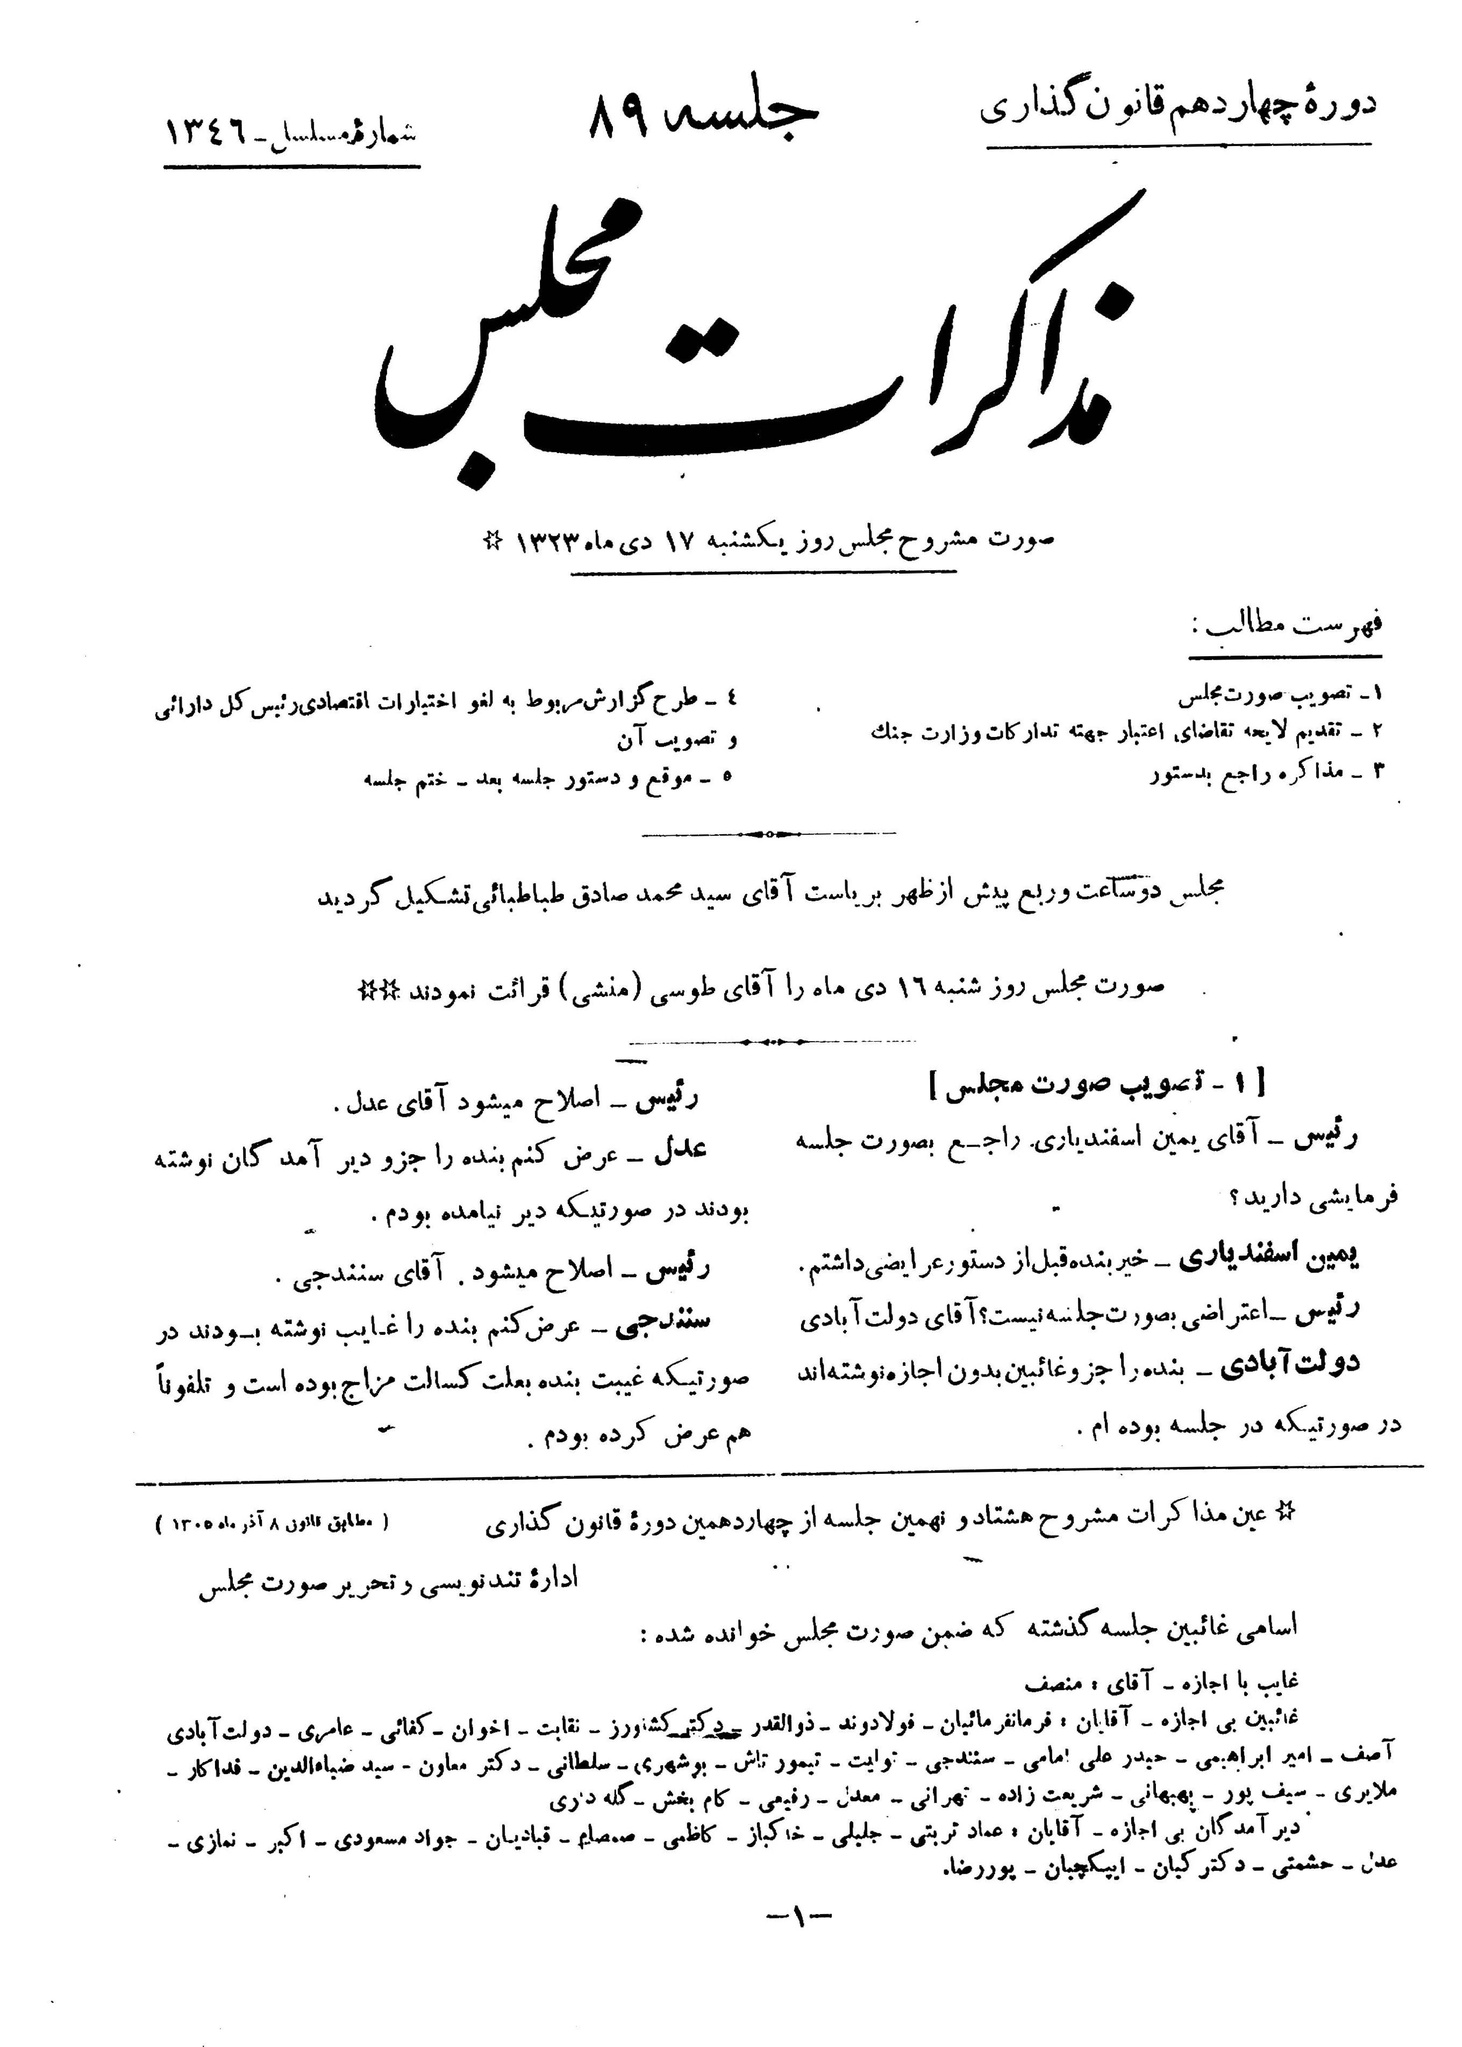 دورهٔ چهاردهم قانون گذاری
جلسه ۸۹
شمارهٔ مسلسل ـ ۱۳٤٦
مذاکرات مجلس
صورت مشروح مجلس روز یکشنبه ۱۷ دی ماه ۱۳۲۳ ☆
فهرست مطالب :
۱ـ تصویب صورت مجلس
۲ ـ تقدیم لایحه تقاضای اعتبار جهته تدارکات وزارت جنك
۳ ـ مذاکره راجع بدستور
٤ ـ طرح گزارش مربوط به لغو اختیارات اقتصادی رئیس کل دارائی
و تصویب آن
٥ ـ موقع و دستور جلسه بعد ـ ختم جلسه
مجلس دو ساعت و ربع پیش از ظهر بریاست آقای سید محمد صادق طباطبائی تشکیل گردید
صورت مجلس روز شنبه ۱٦ دی ماه را آقای طوسی (منشی) قرائت نمودند ☆☆
[ ۱ ـ تصویب صورت مجلس ]
رئیس ـ آقای یمین اسفندیاری. راجـع بصورت جلسه
فرمایشی دارید؟
یمین اسفندیاری ـ خیر بنده قبل از دستور عرایضی داشتم.
رئیس ـ اعتراضی بصورت جلسه نیست؟ آقای دولت آبادی
دولت آبادی ـ بنده را جزو غائبین بدون اجازه نوشته اند
در صورتیکه در جلسه بوده ام .
رئیس ـ اصلاح میشود آقای عدل .
عدل ـ عرض کنم بنده را جزو دیر آمد گان نوشته
بودند در صورتیکه دیر نیامده بودم .
رئیس ـ اصلاح میشود . آقای سنندجی .
سنندجی ـ عرض کنم بنده را غـایب نوشته بـودند در
صورتیکه غیبت بنده بعلت کسالت مزاج بوده است و تلفوناً
هم عرض کرده بودم .
☆ عین مذاکرات مشروح هشتاد و نهمین جلسه از چهاردهمین دورهٔ قانون گذاری
( مطابق قانون ۸ آذر ماه ۱۳۰٥ )
ادارهٔ تندنویسی و تحریر صورت مجلس
اسامی غائبین جلسه گذشته که ضمن صورت مجلس خوانده شده :
غایب با اجازه ـ آقای : منصف
غائبین بی اجازه ـ آقایان : فرمانفرمائیان ـ فولادوند ـ ذوالقدر ـ دکتر کشاورز ـ نقابت ـ اخوان ـ کفائی ـ عامری ـ دولت آبادی
آصف ـ امیر ابراهیمی ـ حیدر علی امامی ـ سنندجی ـ تولیت ـ تیمور تاش ـ بوشهری ـ سلطانی ـ دکتر معاون ـ سید ضیاءالدین ـ فداکار ـ
ملایری ـ سیف پور ـ بهبهانی ـ شریعت زاده ـ تهرانی ـ معدل ـ رفیعی ـ کام بخش ـ گله داری
دیر آمدگان بی اجازه ـ آقایان : عماد تربتی ـ جلیلی ـ خاکباز ـ کاظمی ـ صمصام ـ قبادیان ـ جواد مسعودی ـ اکبر ـ نمازی ـ
عدل ـ حشمتی ـ دکتر کیان ـ ایپکچیان ـ پوررضا.
ـ۱ـ